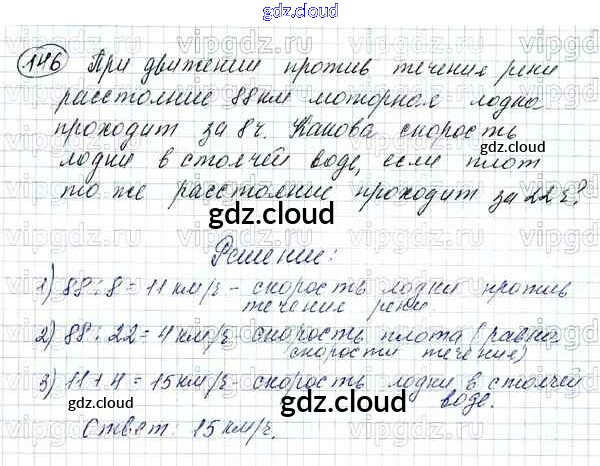 gdz.cloud
146 При движении против течения реки
расстояние 88 км моторная лодка
проходит за 8 ч. Какова скорость
лодки в стоячей воде, если плот
то же расстояние проходит за 22 ч?
gdz.cloud
Решение:
1) 88 : 8 = 11 км/ч - скорость лодки против
течения реки
2) 88 : 22 = 4 км/ч - скорость плота (равна
скорости течения)
3) 11 + 4 = 15 км/ч - скорость лодки в стоячей
воде.
Ответ: 15 км/ч.
gdz.cloud
gdz.cloud
gdz.cloud
gdz.cloud
gdz.cloud
gdz.cloud